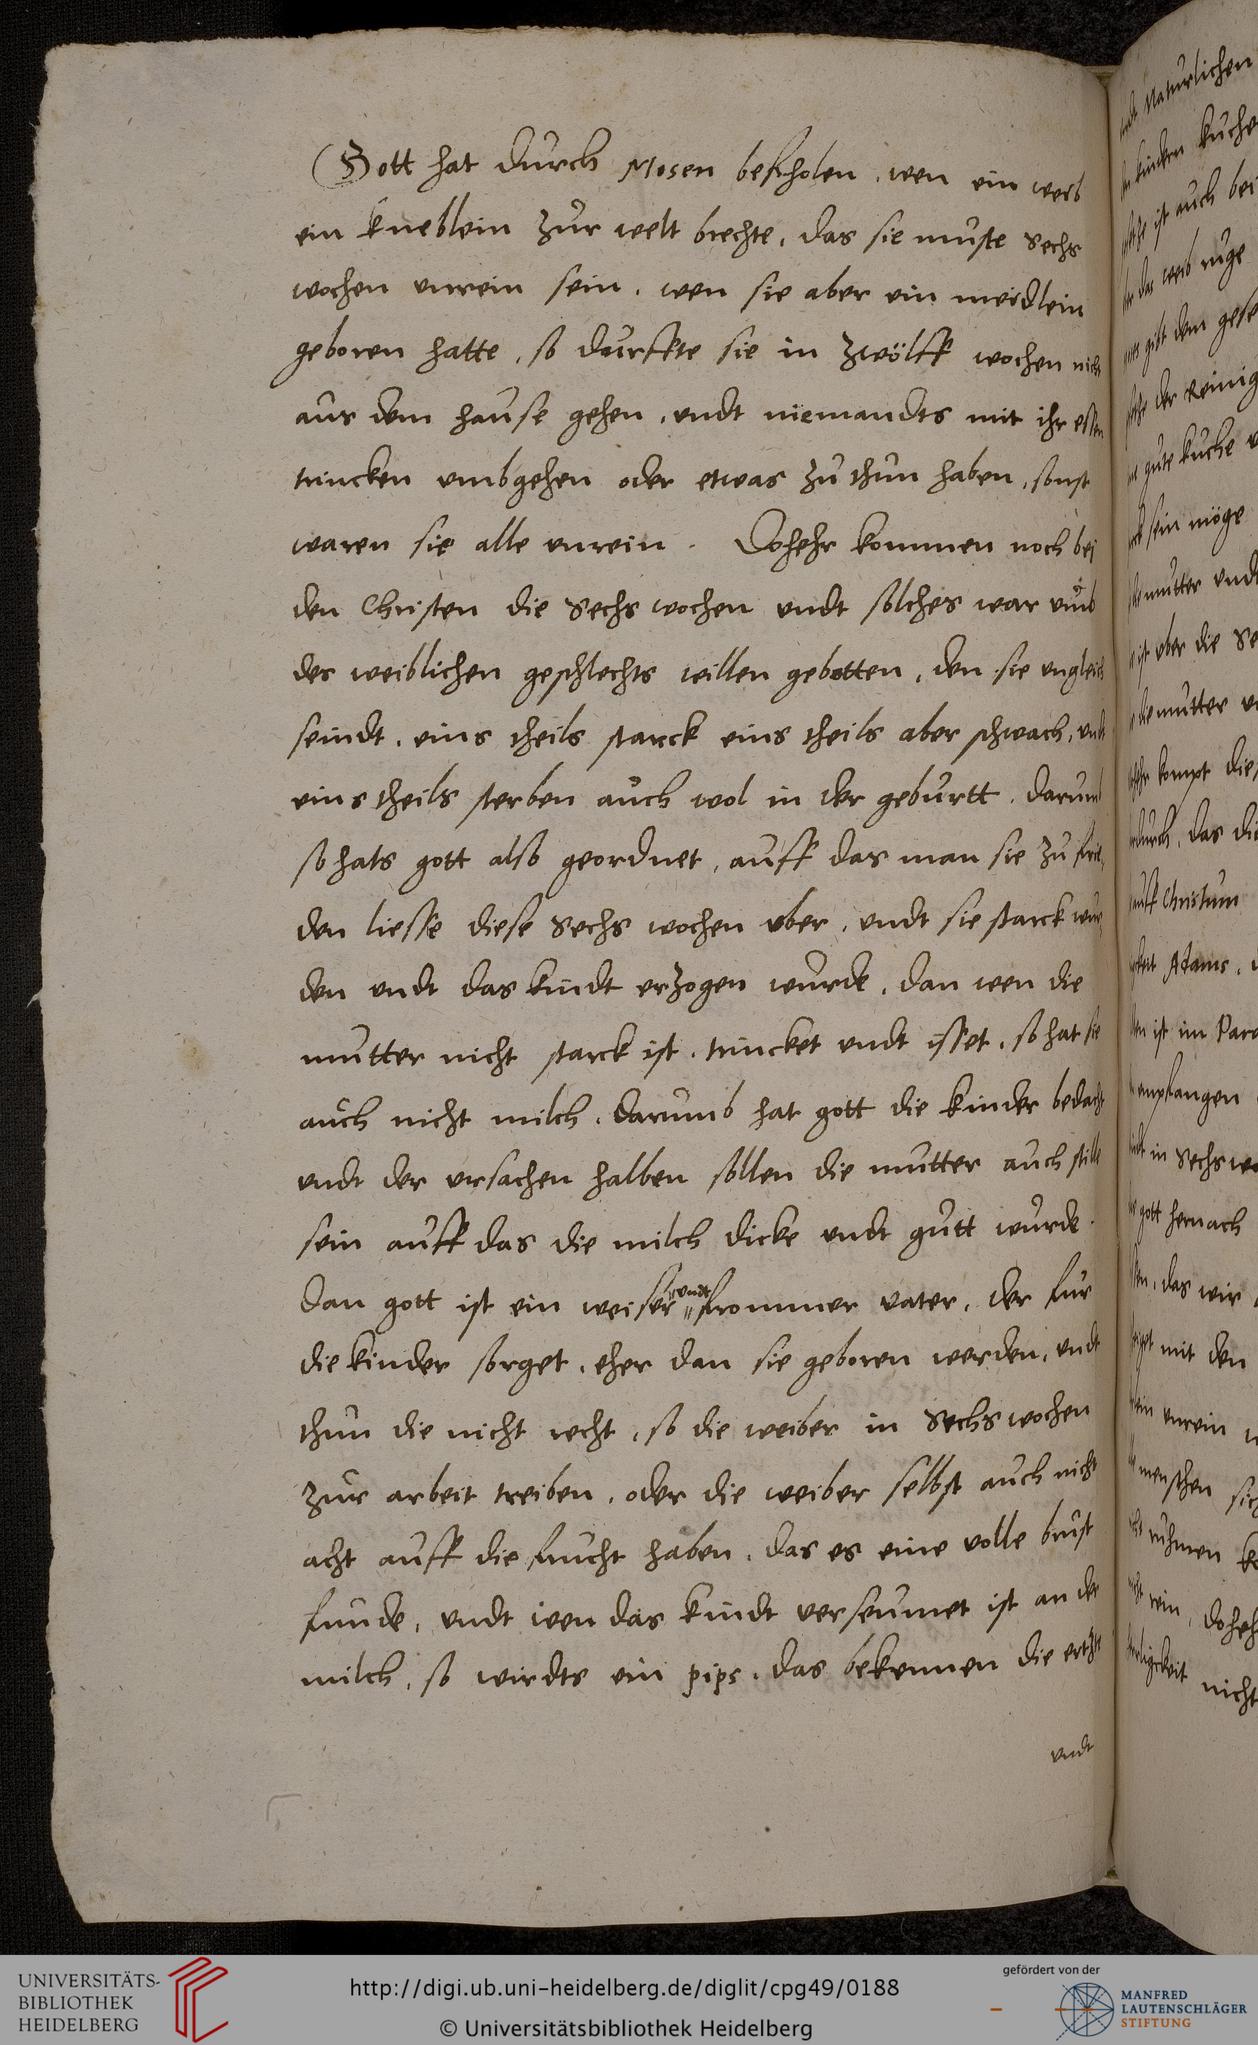 Gott hat durch Mosen befholen, wen ein weib
ein kneblein zur welt brechte, das sie muste sechs
wochen unrein sein, wen sie aber ein meidlein
geboren hatte, so durffte sie in zwölff wochen nicht
aus dem hause gehen, undt niemandts mit ihr essen
trincken umbgehen oder etwas zu thun haben, sonst
waren sie alle unrein. Dohehr kommen noch bei
den Christen die sechs wochen undt solches war umb
des weiblichen geschlechts willen gebotten, den sie ungleich
seindt, eins theils starck eins theils aber schwach, undt
eins theils sterben auch wol in der geburtt. darumb
so hats gott also geordnet, auff das man sie zu frie
den liesse diese sechs wochen uber, undt sie starck wur
den undt das kindt erzogen wurde, dan wen die
mutter nicht starck ist, trincket undt isset, so hat sie
auch nicht milch, darumb hat gott die kinder bedacht
undt der ursachen halben sollen die mutter auch still
sein auff das die milch dicke undt gutt wurde.
Dan gott ist ein weiser undt frommer vater, der fur
die kinder sorget, eher dan sie geboren werden, undt
thun die nicht recht, so die weiber in sechs wochen
zur arbeit treiben, oder die weiber selbst auch nicht
acht auff die frucht haben, das es eine volle brust
funde, undt wen das kindt verseumet ist an der
milch, so wirdts ein pips, das bekennen die ertzte
undt
Naturlichen
kinden kuche
ist auch bei
das weib ruge
gibt dem gese
der Reinig
gute kuche
sein möge
mutter undt
ist uber die Se
die mutter
kompt die
durch, das die
auff Christum
Adams,
ist im Para
empfangen
in Sechs wo
gott hernach
das wir
mit den
unrein
menschen sich
ruhmen
rein, doheh
nicht
UNIVERSITÄTS-
BIBLIOTHEK
HEIDELBERG
http://digi.ub.uni-heidelberg.de/diglit/cpg49/0188
© Universitätsbibliothek Heidelberg
gefördert von der
MANFRED
LAUTENSCHLÄGER
STIFTUNG